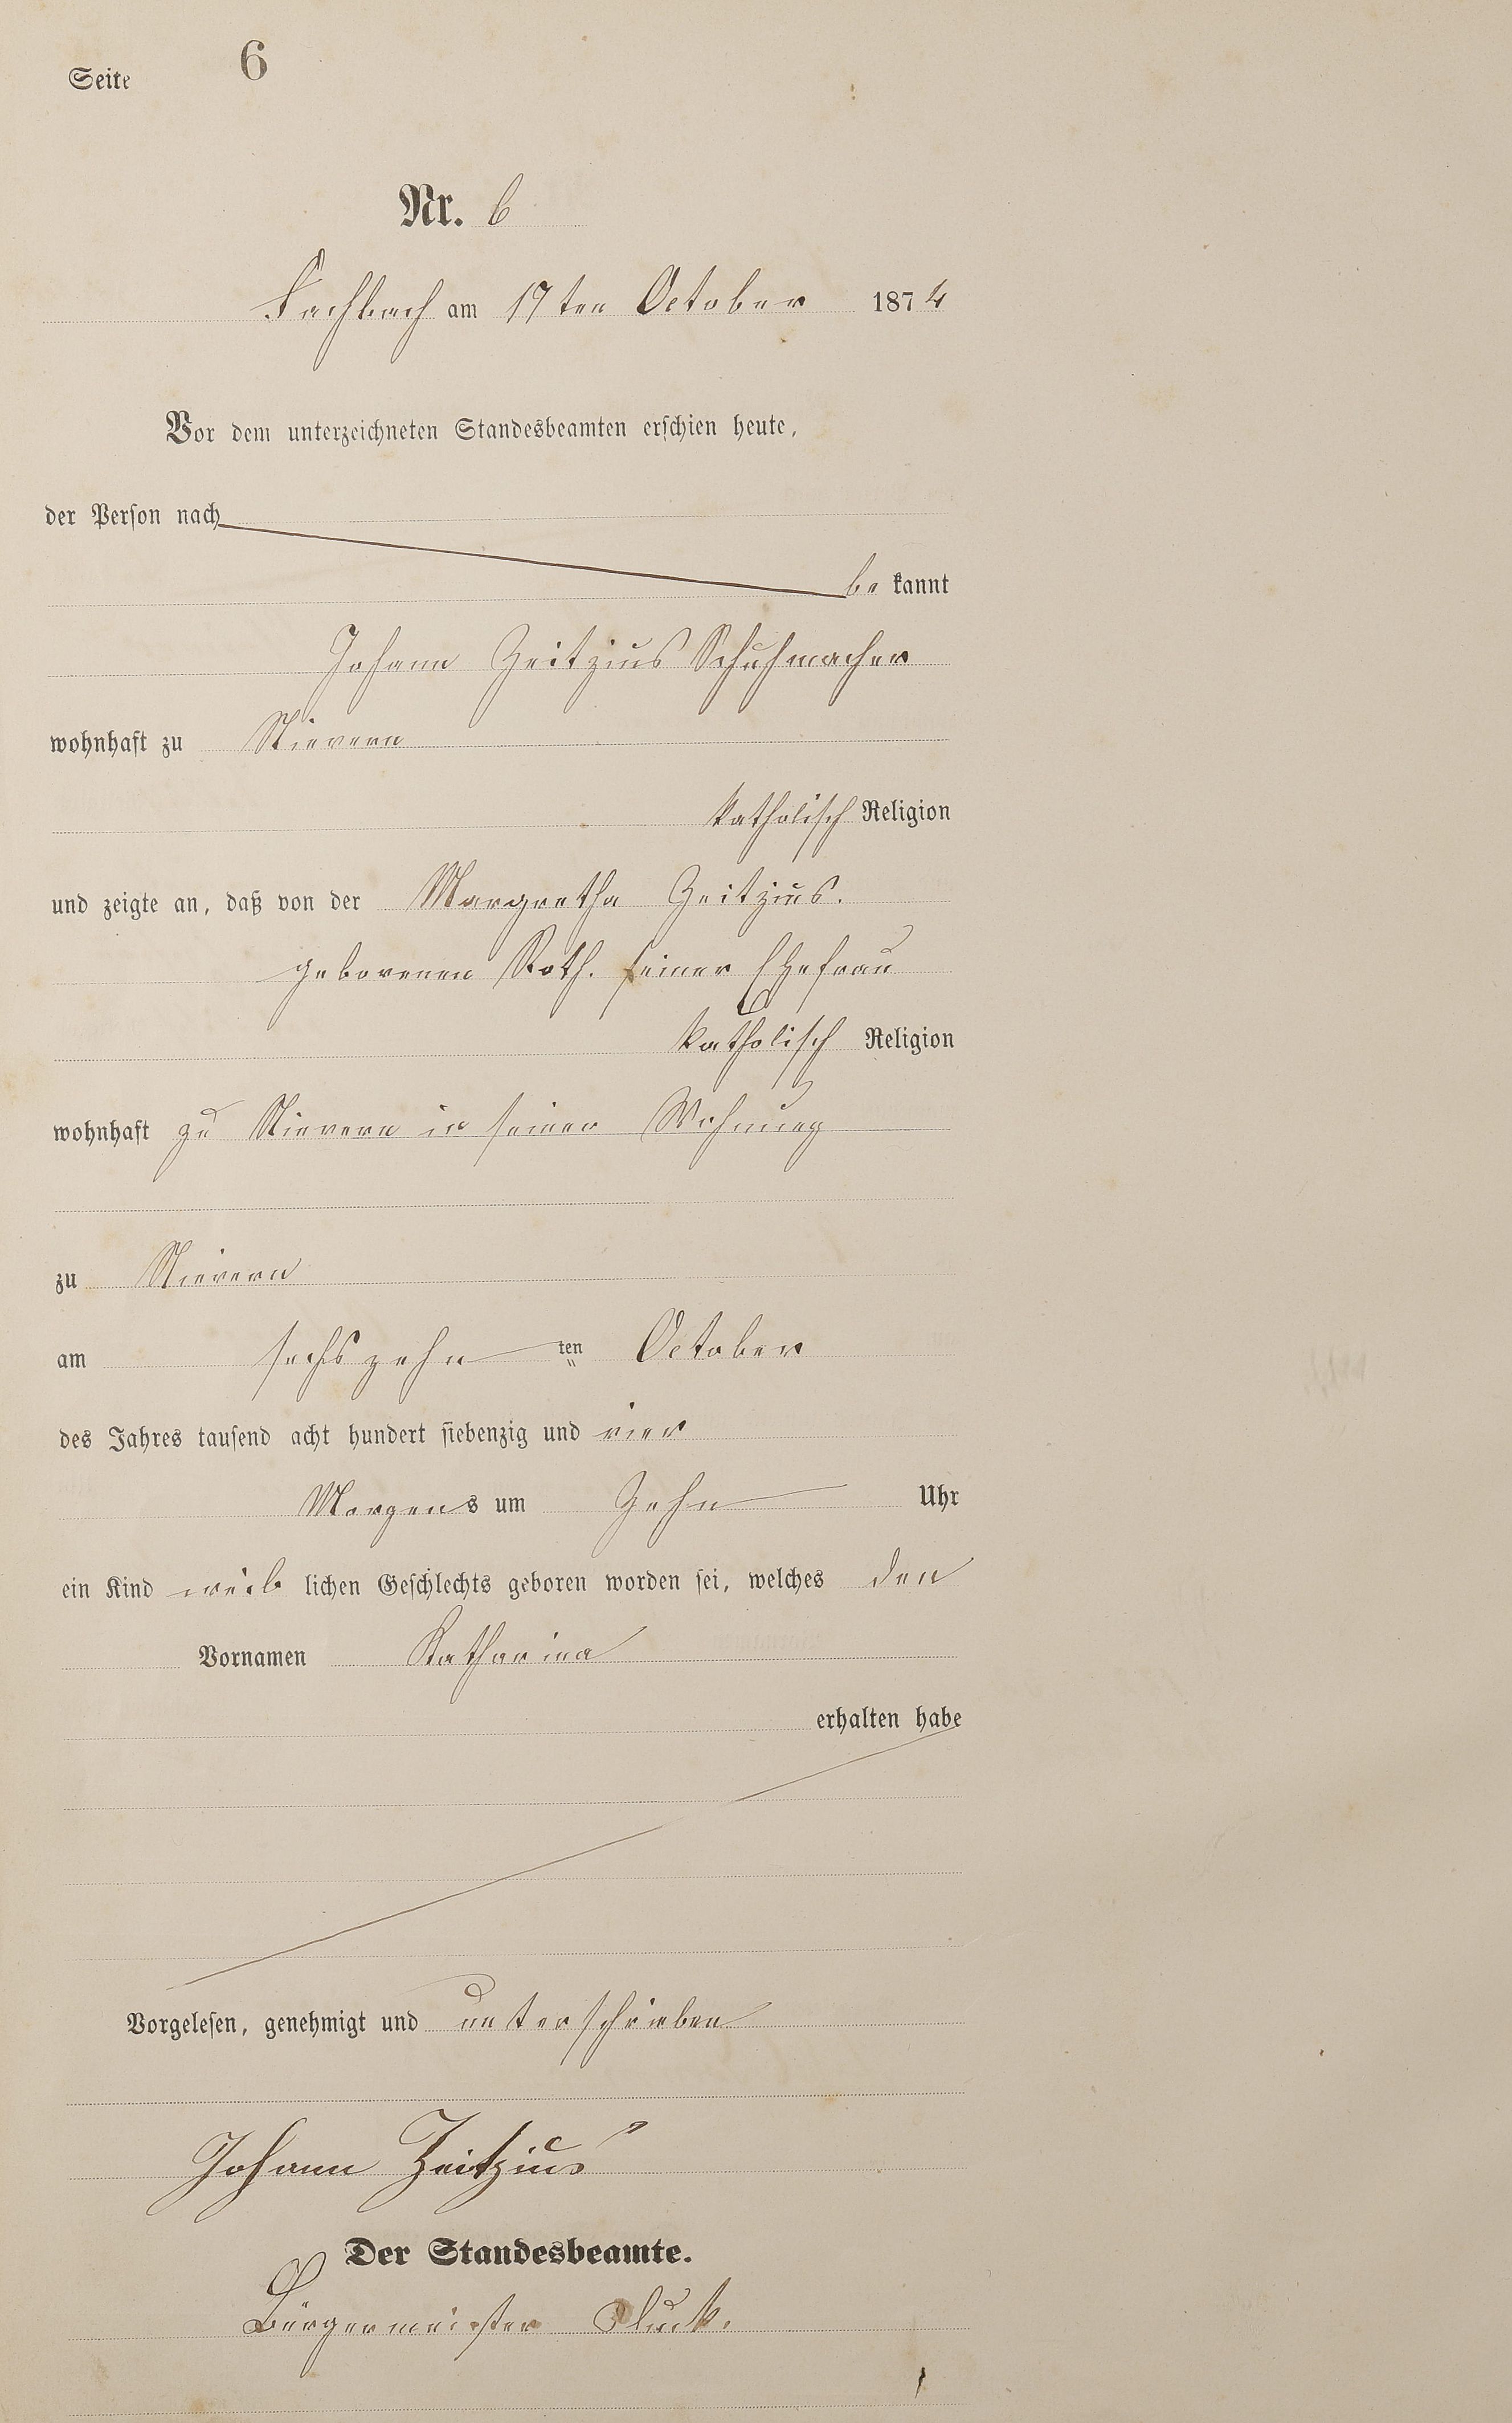 Seite 6
Nr. 6
Fachbach am 17ten October 1874
Vor dem unterzeichneten Standesbeamten erschien heute,
der Person nach
be kannt
Johann Zeitzius Schuhmacher
wohnhaft zu Nievern
katholisch Religion
und zeigte an, daß von der Margretha Zeitzius.
geborenen Roth. seiner Ehefrau
katholisch Religion
wohnhaft zu Nievern in seiner Wohnung
zu Nievern
am sechszehn ten October
des Jahres tausend acht hundert siebenzig und vier
Morgens um Zehn Uhr
ein Kind weib lichen Geschlechts geboren worden sei, welches den
Vornamen Katharina
erhalten habe
Vorgelesen, genehmigt und unterschrieben
Johann Zeitzius
Der Standesbeamte.
Bürgermeister